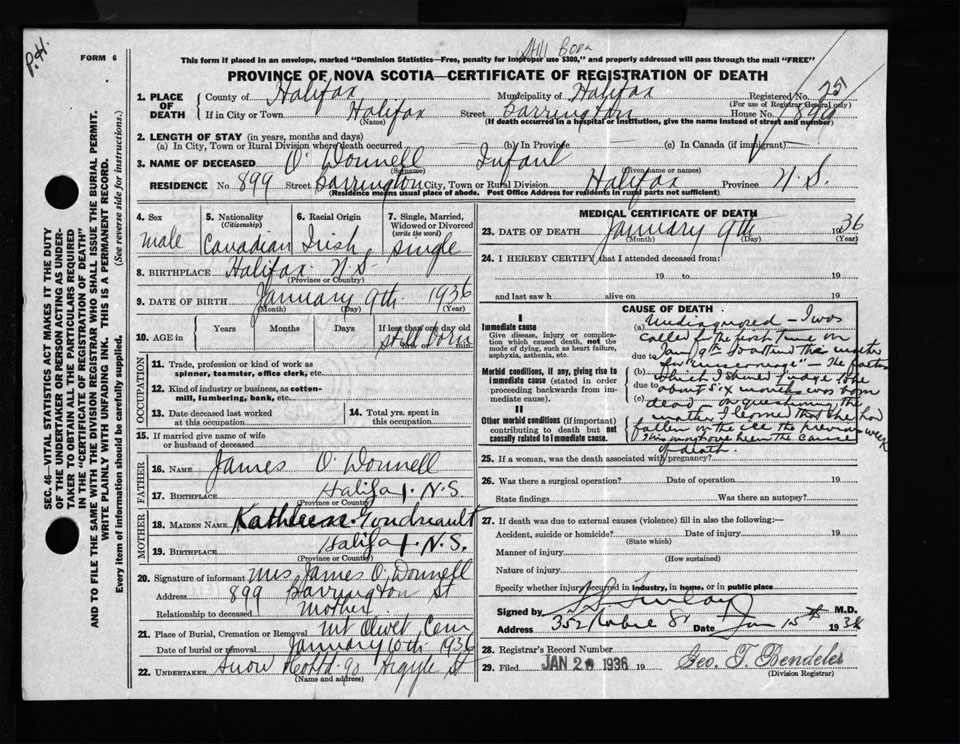 P.H.
FORM 6
Still Born
This form if placed in an envelope, marked "Dominion Statistics—Free, penalty for improper use $300," and properly addressed will pass through the mail "FREE"
PROVINCE OF NOVA SCOTIA—CERTIFICATE OF REGISTRATION OF DEATH
1. PLACE OF DEATH County of Halifax Municipality of Halifax Registered No. 25
(For use of Registrar General only)
If in City or Town Halifax Street Barrington House No. 899
(Name) (If death occurred in a hospital or institution, give the name instead of street and number)
2. LENGTH OF STAY (in years, months and days)
(a) In City, Town or Rural Division where death occurred (b) In Province (c) In Canada (if immigrant)
3. NAME OF DECEASED O'Donnell Infant
(Surname) (Given name or names)
RESIDENCE No. 899 Street Barrington City, Town or Rural Division Halifax Province N.S.
(Residence means usual place of abode. Post Office Address for residents in rural parts not sufficient)
4. Sex 5. Nationality 6. Racial Origin 7. Single, Married, Widowed or Divorced
(Citizenship) (write the word)
male Canadian Irish single
8. BIRTHPLACE Halifax N.S.
(Province or Country)
9. DATE OF BIRTH January 9th 1936
(Month) (Day) (Year)
10. AGE in Years Months Days If less than one day old
Still born
hrs. or min.
OCCUPATION
11. Trade, profession or kind of work as spinner, teamster, office clerk, etc.
12. Kind of industry or business, as cotton-mill, lumbering, bank, etc.
13. Date deceased last worked at this occupation
14. Total yrs. spent in this occupation
15. If married give name of wife or husband of deceased
FATHER
16. NAME James O'Donnell
17. BIRTHPLACE Halifax. N.S.
(Province or Country)
MOTHER
18. MAIDEN NAME Kathleen Goudreault
19. BIRTHPLACE Halifax. N.S.
(Province or Country)
20. Signature of informant Mrs James O'Donnell
Address 899 Barrington St
Relationship to deceased Mother
21. Place of Burial, Cremation or Removal Mt Olivet Cem
Date of burial or removal January 1936
22. UNDERTAKER Snow 90 Argyle St
(Name and address)
MEDICAL CERTIFICATE OF DEATH
23. DATE OF DEATH January 9th 1936
(Month) (Day) (Year)
24. I HEREBY CERTIFY that I attended deceased from:
19 to 19
and last saw h alive on 19
CAUSE OF DEATH
I
Immediate cause
Give disease, injury or complication which caused death, not the mode of dying, such as heart failure, asphyxia, asthenia, etc.
Morbid conditions, if any, giving rise to immediate cause (stated in order proceeding backwards from immediate cause).
II
Other morbid conditions (if important) contributing to death but not causally related to immediate cause.
(a) Undiagnosed – I was
called for the first time on
due to Jan 9th to attend this mother
(b) for "miscarriage" – The foetus
due to which I should judge to be
(c) about six months was born
dead – on questioning the
mother I learned that she had
fallen on the ice the previous week
This may have been the cause
of death.
25. If a woman, was the death associated with pregnancy?
26. Was there a surgical operation? Date of operation 19
State findings Was there an autopsy?
27. If death was due to external causes (violence) fill in also the following:—
Accident, suicide or homicide? Date of injury 19
(State which)
Manner of injury
(How sustained)
Nature of injury
Specify whether injury occurred in industry, in home, or in public place
Signed by M.D.
Address 352 Robie St Date Jan 15th 1936
28. Registrar's Record Number
29. Filed JAN 20 1936 19 Geo. T. Bendeler
(Division Registrar)
SEC. 46—VITAL STATISTICS ACT MAKES IT THE DUTY OF THE UNDERTAKER OR PERSON ACTING AS UNDERTAKER TO OBTAIN ALL THE PARTICULARS REQUIRED IN THE "CERTIFICATE OF REGISTRATION OF DEATH"
AND TO FILE THE SAME WITH THE DIVISION REGISTRAR WHO SHALL ISSUE THE BURIAL PERMIT.
WRITE PLAINLY WITH UNFADING INK. THIS IS A PERMANENT RECORD.
Every item of information should be carefully supplied. (See reverse side for instructions.)